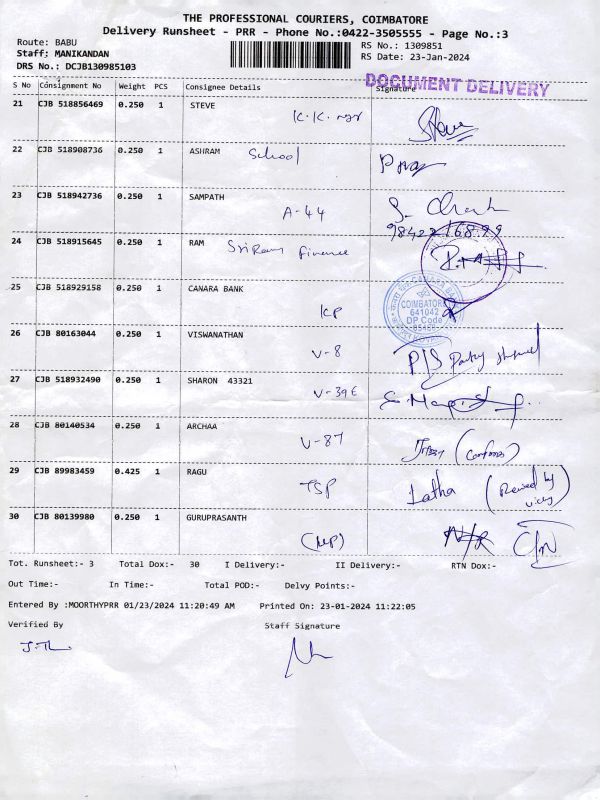 THE PROFESSIONAL COURIERS, COIMBATORE
Delivery Runsheet - PRR - Phone No.:0422-3505555 - Page No.:3
Route: BABU
RS No.: 1309851
Staff: MANIKANDAN
RS Date: 23-Jan-2024
DRS No.: DCJB130985103
DOCUMENT DELIVERY
S No Consignment No Weight PCS Consignee Details Signature
21 CJB 518856469 0.250 1 STEVE
K.K. ngr Steve
22 CJB 518908736 0.250 1 ASHRAM School
23 CJB 518942736 0.250 1 SAMPATH
A-44
24 CJB 518915645 0.250 1 RAM SriRam finance
25 CJB 518929158 0.250 1 CANARA BANK
KP
CANARA BANK
COIMBATORE
641042
DP Code
26 CJB 80163044 0.250 1 VISWANATHAN
V-8
27 CJB 518932490 0.250 1 SHARON 43321
V-39E
28 CJB 80140534 0.250 1 ARCHAA
V-87
29 CJB 89983459 0.425 1 RAGU
TSP Latha
30 CJB 80139980 0.250 1 GURUPRASANTH
(MP)
Tot. Runsheet:- 3 Total Dox:- 30 I Delivery:- II Delivery:- RTN Dox:-
Out Time:- In Time:- Total POD:- Delvy Points:-
Entered By :MOORTHYPRR 01/23/2024 11:20:49 AM Printed On: 23-01-2024 11:22:05
Verified By Staff Signature